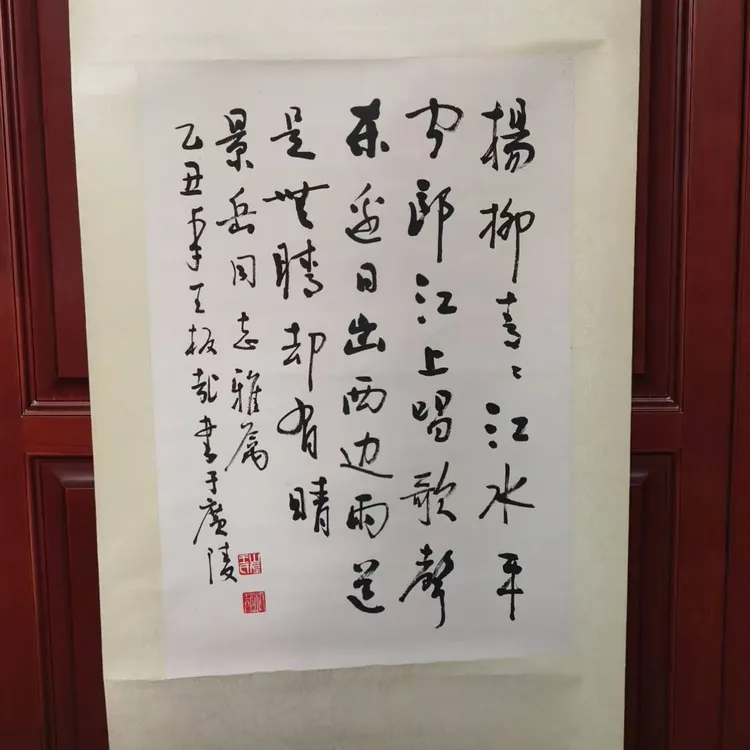 楊柳青〻江水平
闻郎江上唱歌聲
東邊日出西边雨道
是無晴却有晴
景岳同志雅属
乙丑年王板哉書于廣陵